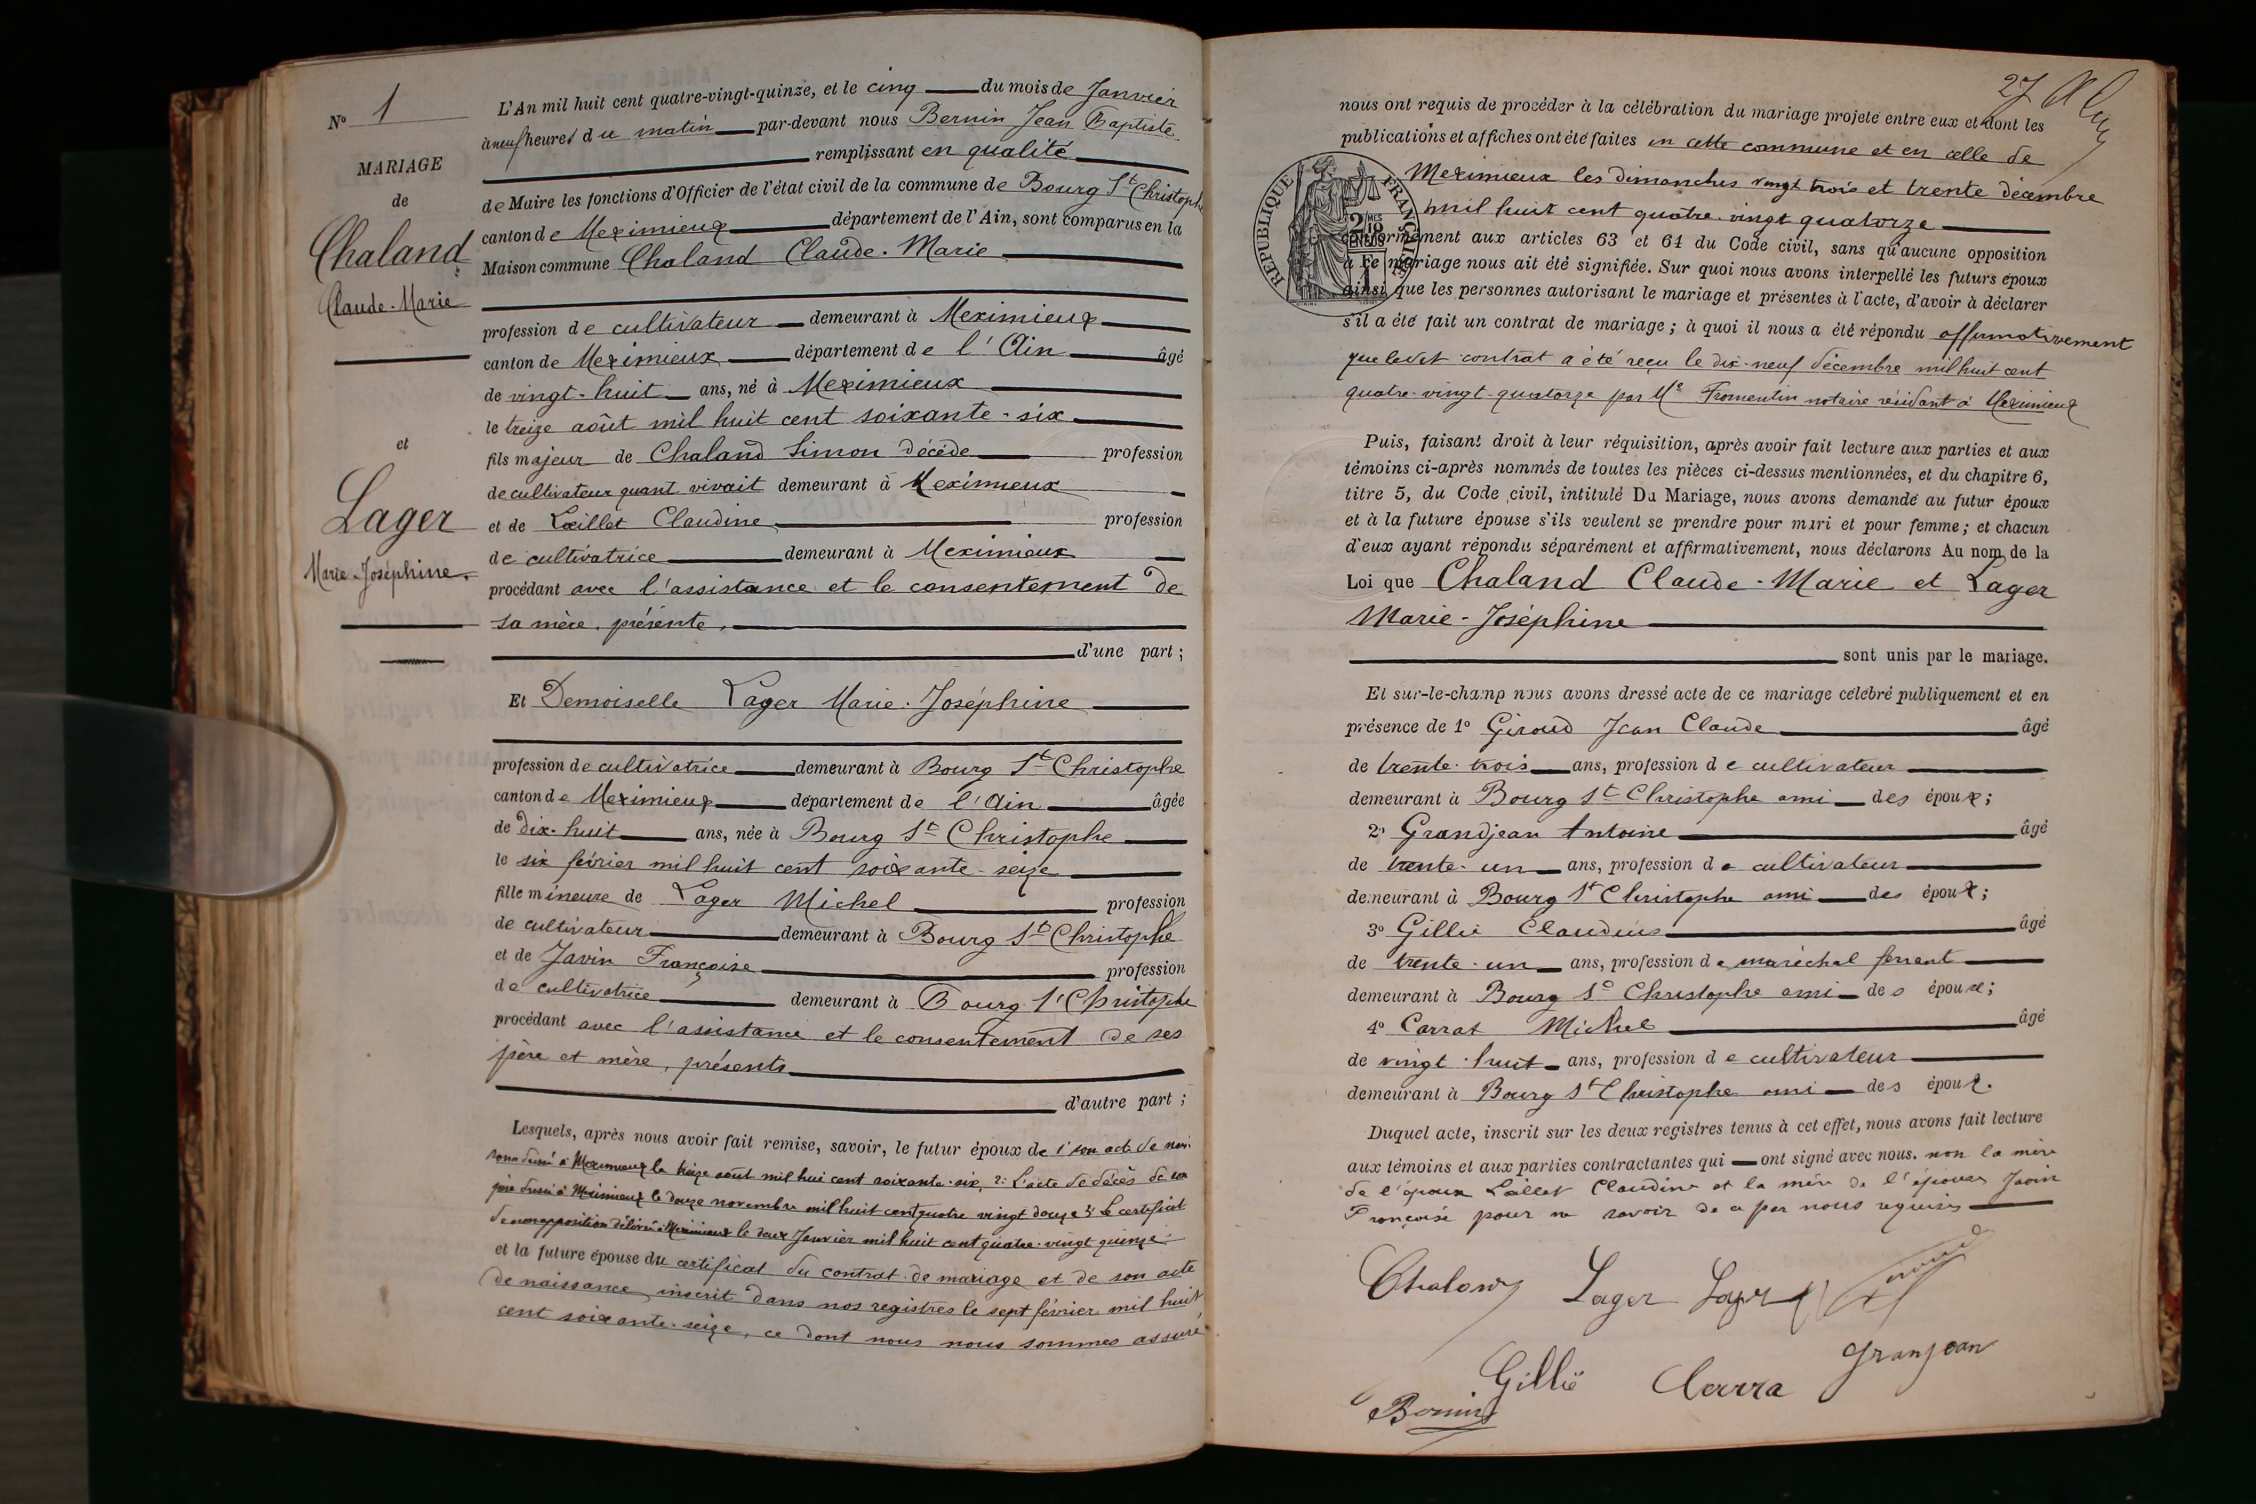 N° 1
MARIAGE
de
Chaland
Claude-Marie
et
Lager
Marie-Joséphine.
L'An mil huit cent quatre-vingt-quinze, et le cinq du mois de Janvier
à neuf heures du matin par-devant nous Bernin Jean Baptiste
remplissant en qualité
de Maire les fonctions d'Officier de l'état civil de la commune de Bourg St Christophe
canton de Meximieux département de l'Ain, sont comparus en la
Maison commune Chaland Claude-Marie
profession de cultivateur demeurant à Meximieux
canton de Meximieux département de l'Ain âgé
de vingt-huit ans, né à Meximieux
le treize août mil huit cent soixante-six
fils majeur de Chaland Simon décédé profession
de cultivateur quant vivait demeurant à Meximieux
et de Lœillet Claudine profession
de cultivatrice demeurant à Meximieux
procédant avec l'assistance et le consentement de
sa mère, présente,
d'une part ;
Et Demoiselle Lager Marie-Joséphine
profession de cultivatrice demeurant à Bourg St Christophe
canton de Meximieux département de l'Ain âgée
de dix-huit ans, née à Bourg St Christophe
le six février mil huit cent soixante-seize
fille mineure de Lager Michel profession
de cultivateur demeurant à Bourg St Christophe
et de Javin Françoise profession
de cultivatrice demeurant à Bourg St Christophe
procédant avec l'assistance et le consentement de ses
père et mère, présents
d'autre part ;
Lesquels, après nous avoir fait remise, savoir, le futur époux de 1° son acte de nais-
sance dressé à Meximieux le treize août mil huit cent soixante-six, 2° L'acte de décès de son
père dressé à Meximieux le douze novembre mil huit cent quatre vingt douze 3° Le certificat
de non opposition délivré à Meximieux le deux Janvier mil huit cent quatre-vingt quinze
et la future épouse du certificat du contrat de mariage et de son acte
de naissance inscrit dans nos registres le sept février mil huit
cent soixante-seize, ce dont nous nous sommes assuré
27
nous ont requis de procéder à la célébration du mariage projeté entre eux et dont les
publications et affiches ont été faites en cette commune et en celle de
Meximieux les dimanches vingt trois et trente décembre
mil huit cent quatre-vingt quatorze
RÉPUBLIQUE FRANÇAISE
conformément aux articles 63 et 64 du Code civil, sans qu'aucune opposition
à ce mariage nous ait été signifiée. Sur quoi nous avons interpellé les futurs époux
ainsi que les personnes autorisant le mariage et présentes à l'acte, d'avoir à déclarer
s'il a été fait un contrat de mariage ; à quoi il nous a été répondu affirmativement
que ledit contrat a été reçu le dix-neuf décembre mil huit cent
quatre-vingt-quatorze par Me Fromentin notaire résidant à Meximieux
Puis, faisant droit à leur réquisition, après avoir fait lecture aux parties et aux
témoins ci-après nommés de toutes les pièces ci-dessus mentionnées, et du chapitre 6,
titre 5, du Code civil, intitulé Du Mariage, nous avons demandé au futur époux
et à la future épouse s'ils veulent se prendre pour mari et pour femme ; et chacun
d'eux ayant répondu séparément et affirmativement, nous déclarons Au nom de la
Loi que Chaland Claude-Marie et Lager
Marie-Joséphine
sont unis par le mariage.
Et sur-le-champ nous avons dressé acte de ce mariage célébré publiquement et en
présence de 1° Giroud Jean Claude âgé
de trente-trois ans, profession de cultivateur
demeurant à Bourg St Christophe ami des époux ;
2° Grandjean Antoine âgé
de trente-un ans, profession de cultivateur
demeurant à Bourg St Christophe ami des époux ;
3° Gillie Claudius âgé
de trente-un ans, profession de maréchal ferrant
demeurant à Bourg St Christophe ami des époux ;
4° Carrat Michel âgé
de vingt-huit ans, profession de cultivateur
demeurant à Bourg St Christophe ami des époux.
Duquel acte, inscrit sur les deux registres tenus à cet effet, nous avons fait lecture
aux témoins et aux parties contractantes qui ont signé avec nous. non la mère
de l'époux Lœillet Claudine et la mère de l'épouse Javin
Françoise pour ne savoir de ce par nous requises
Chaland Lager Lager
Gillie Carra Granjean
Bernin